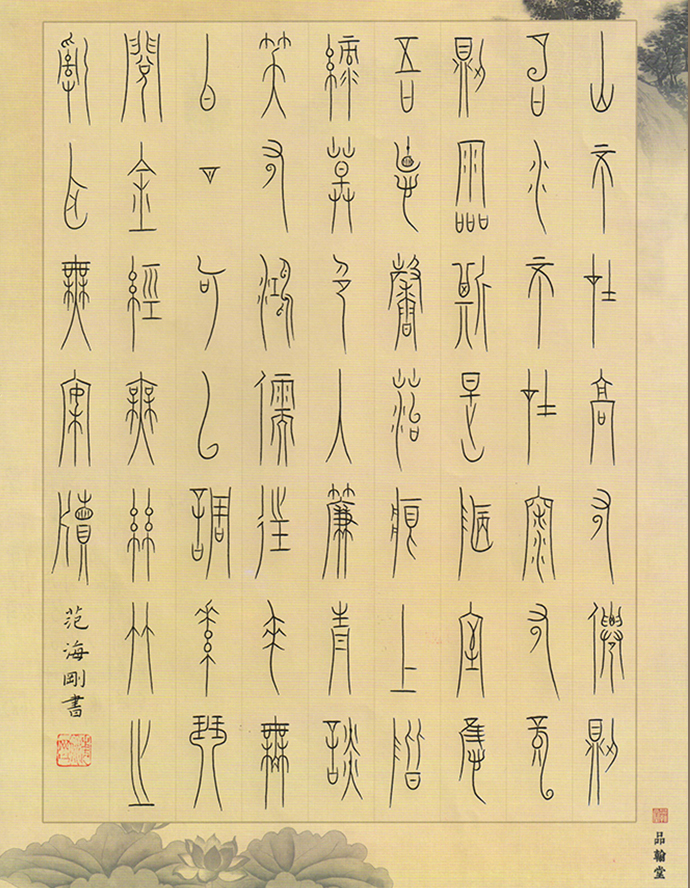 山不在高有僊則
名水不在深有龍
則靈斯是陋室惟
吾悳馨苔痕上階
綠草色入簾青談
笑有鴻儒往來無
白丁可以調素琴
閱金經無絲竹之
亂耳無案牘
范海剛書
品翰堂